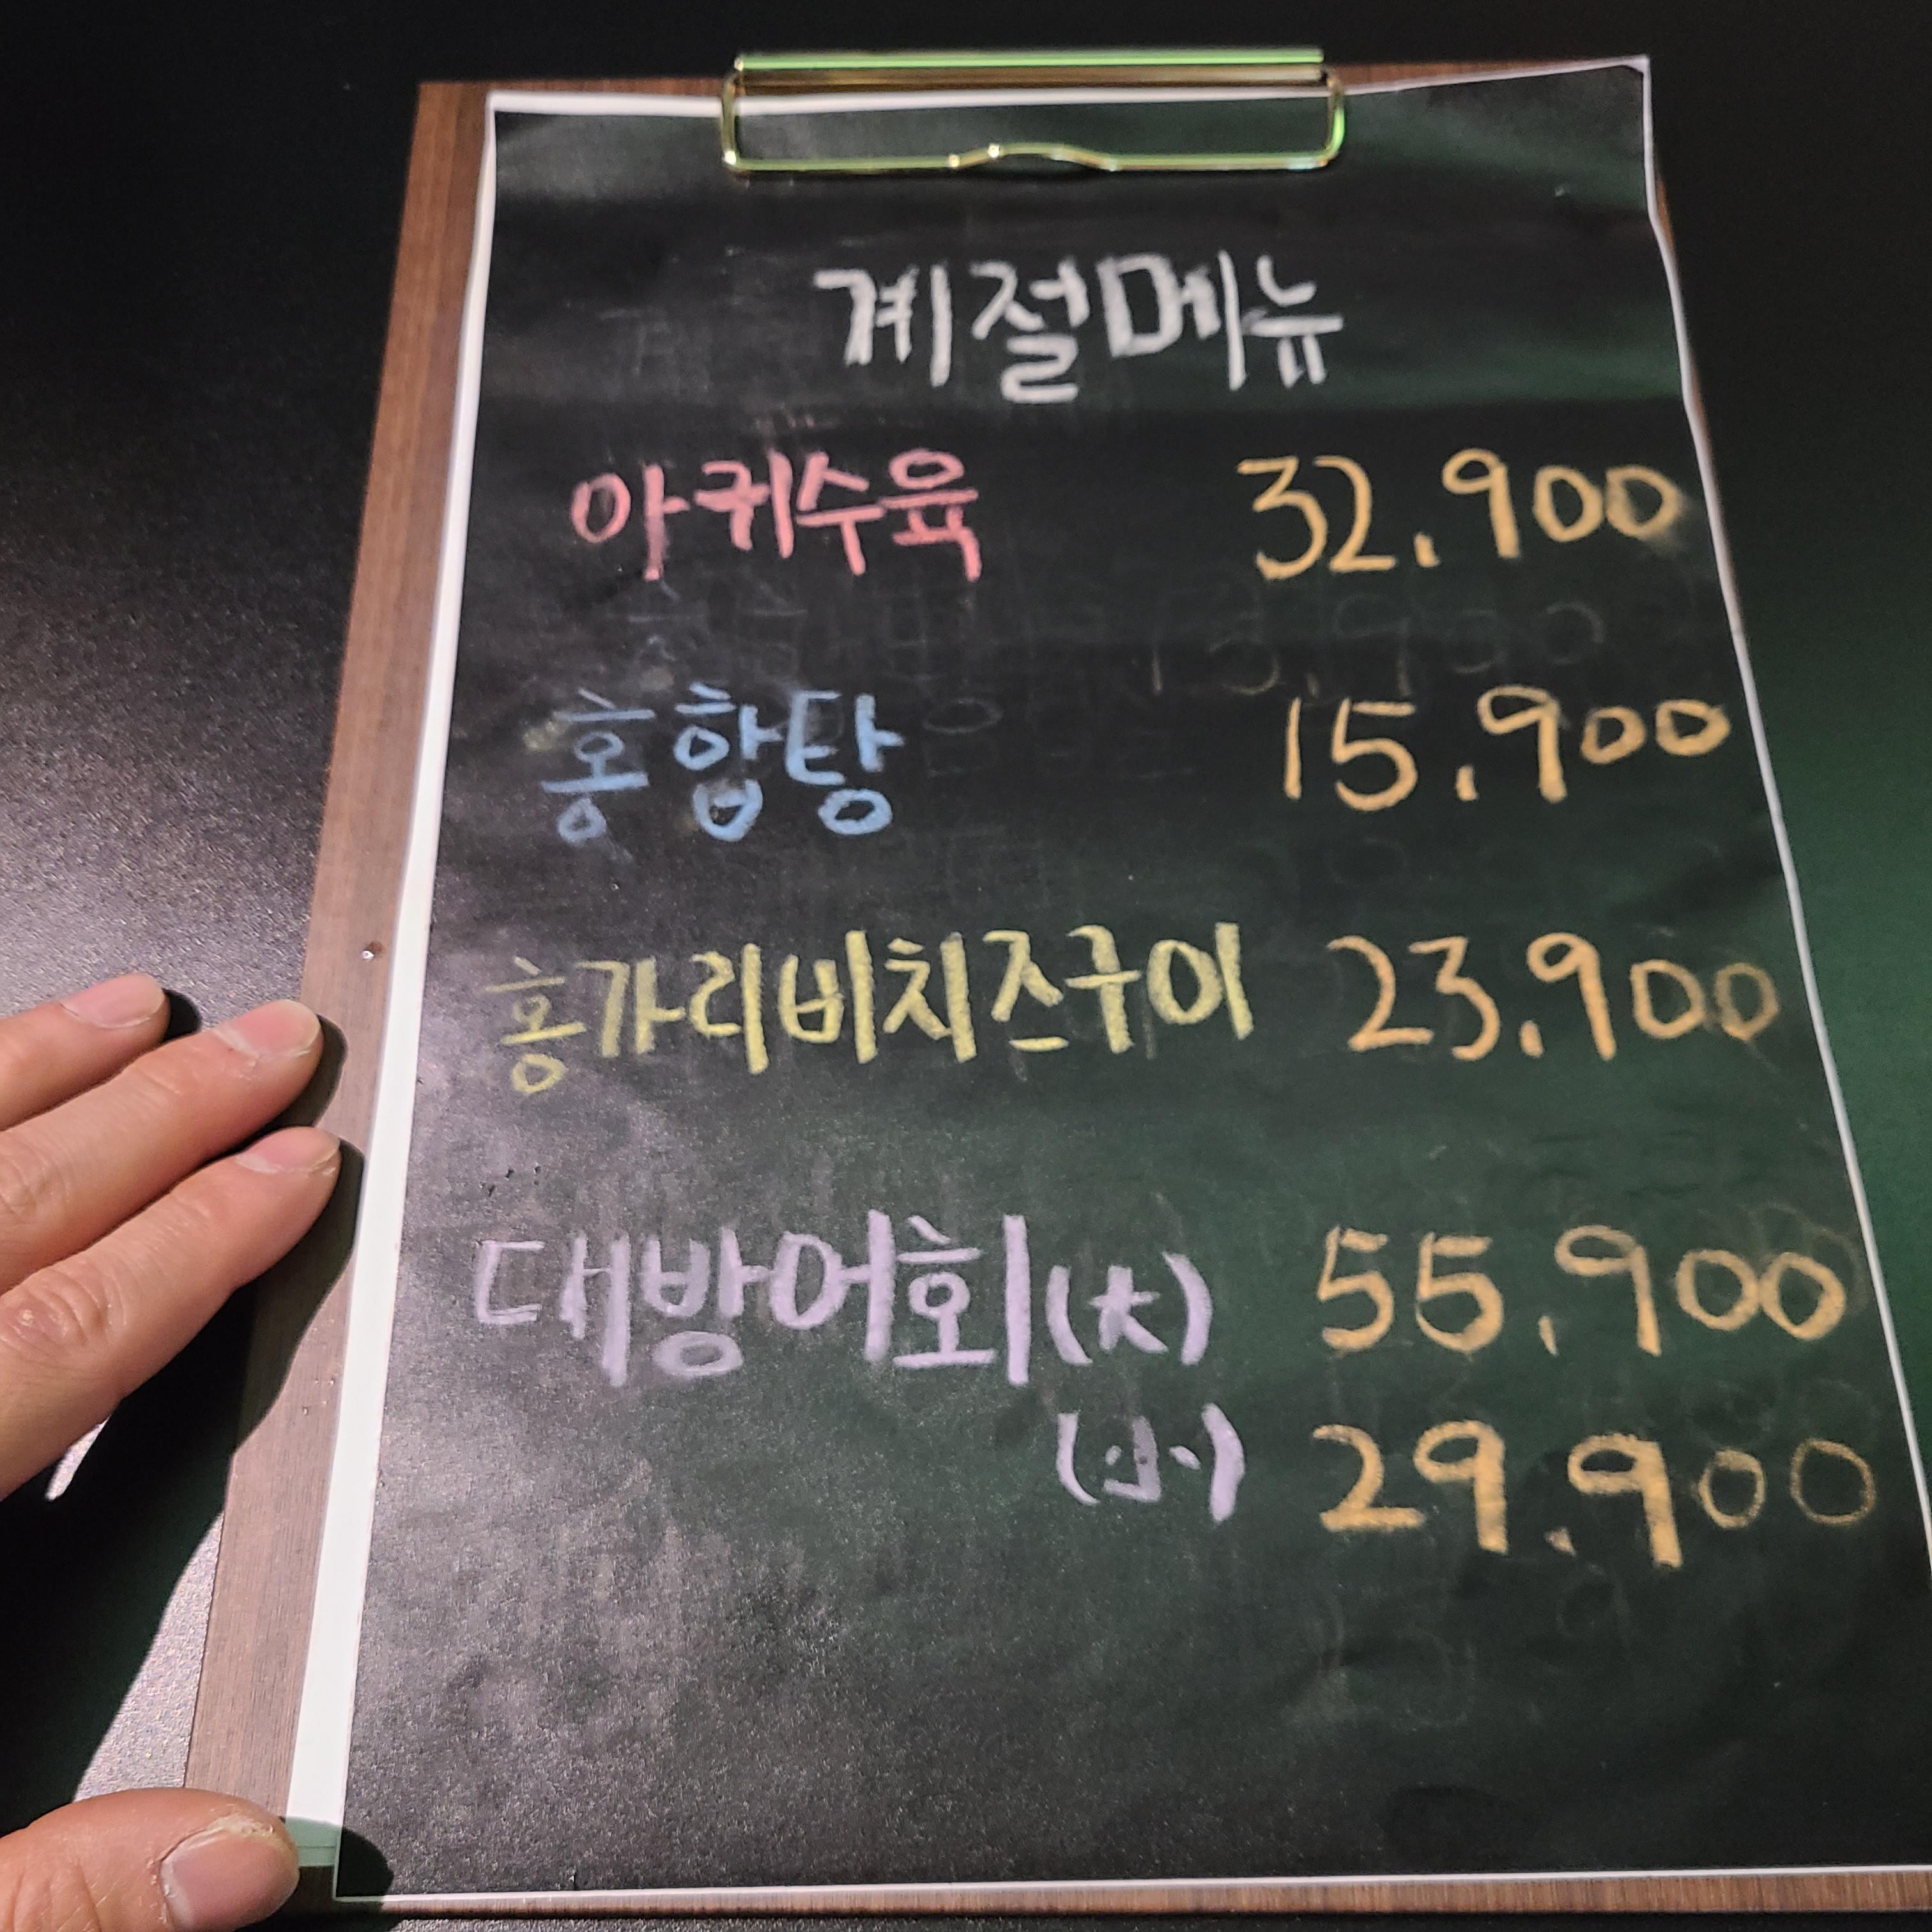 계절메뉴
아귀수육 32.900
홍합탕 15.900
홍가리비치즈구이 23.900
대방어회(大) 55.900
(小) 29.900